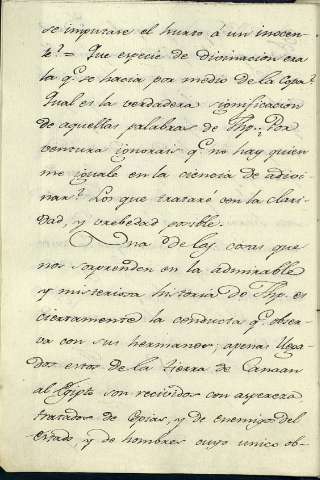 se imputase el hurto á un inocen-
te? = Que especie de divinacion era
la q.e se hacia por medio de la Copa?
Qual es la verdadera significacion
de aquellas palabras de Jhp.: Por
ventura ignorais q.e no hay quien
me iguale en la ciencia de adivi-
nar? Los que trataré con la clari-
dad, y brebedad posible.
Una de las cosas que
nos sorprenden en la admirable
y misteriosa historia de Jhp. es
ciertamente la conducta q.e obser-
va con sus hermanos; apenas llega-
dos estos de la tierra de Canaan
al Egipto son recividos con aspereza
tratados de Espias, y de enemigos del
Estado, y de hombres cuyo unico ob-